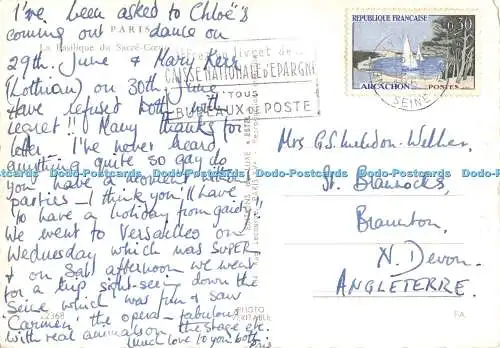 I've been asked to Chloë's
PARIS
coming out dance on
La Basilique du Sacré-Cœur
29th. June & Mary Kerr
(Lothian) on 30th June
Have refused both with
regret!! Many thanks for
letter - I've never heard
anything quite so gay do
you have a moment without
parties - I think you'll have
to have a holiday from gaiety!
We went to Versailles on
Wednesday which was SUPER
& on Sat afternoon we went
for a trip sight-seeing down the
Seine which was fun & saw
Carmen the opera - fabulous
with real animals on the stage etc.
Much love to you both
22368
PHOTO
VERITABLE
livret de
CAISSE NATIONALE D'EPARGNE
TOUS
BUREAUX DE POSTE
RÉPUBLIQUE FRANÇAISE
0,30
ARCACHON
POSTES
SEINE
Mrs G.S. Weldon-Welher,
St. Brannocks,
Braunton,
N. Devon.
ANGLETERRE.
FA
Dodo-Postcards Dodo-Postcards Dodo-Postcards Dodo-Postcards Dodo-Postcards Dodo-Postcards